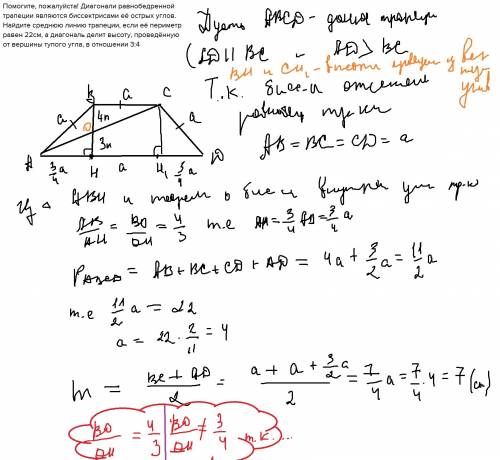 Помогите, пожалуйста! Диагонали равнобедренной
трапеции являются биссектрисами её острых углов.
Найдите среднюю линию трапеции, если её периметр
равен 22см, а диагональ делит высоту, проведённую
от вершины тупого угла, в отношении 3:4
Пусть ABCD - данная трапеция
(AD || BC и AD > BC
BH и CH₁ - высоты трапеции из вер
тупых углов
Т.к. бис-и отсекают
равнобед тр-ки
AB = BC = CD = a
B a C
a O 4n a
3n
A H a H₁ D
3/4 a 3/4 a
Из △ ABH и теореме о бис-и внутр угла тр-ка
AB/AH = BO/OH = 4/3 т.е AH = 3/4 AB = 3/4 a
P ABCD = AB + BC + CD + AD = 4a + 3/2 a = 11/2 a
т.е 11/2 a = 22
a = 22 · 2/11 = 4
m = (BC + AD)/2 = (a + a + 3/2 a)/2 = 7/4 a = 7/4 · 4 = 7 (см)
BO/OH = 4/3 BO/OH ≠ 3/4 т.к. ...